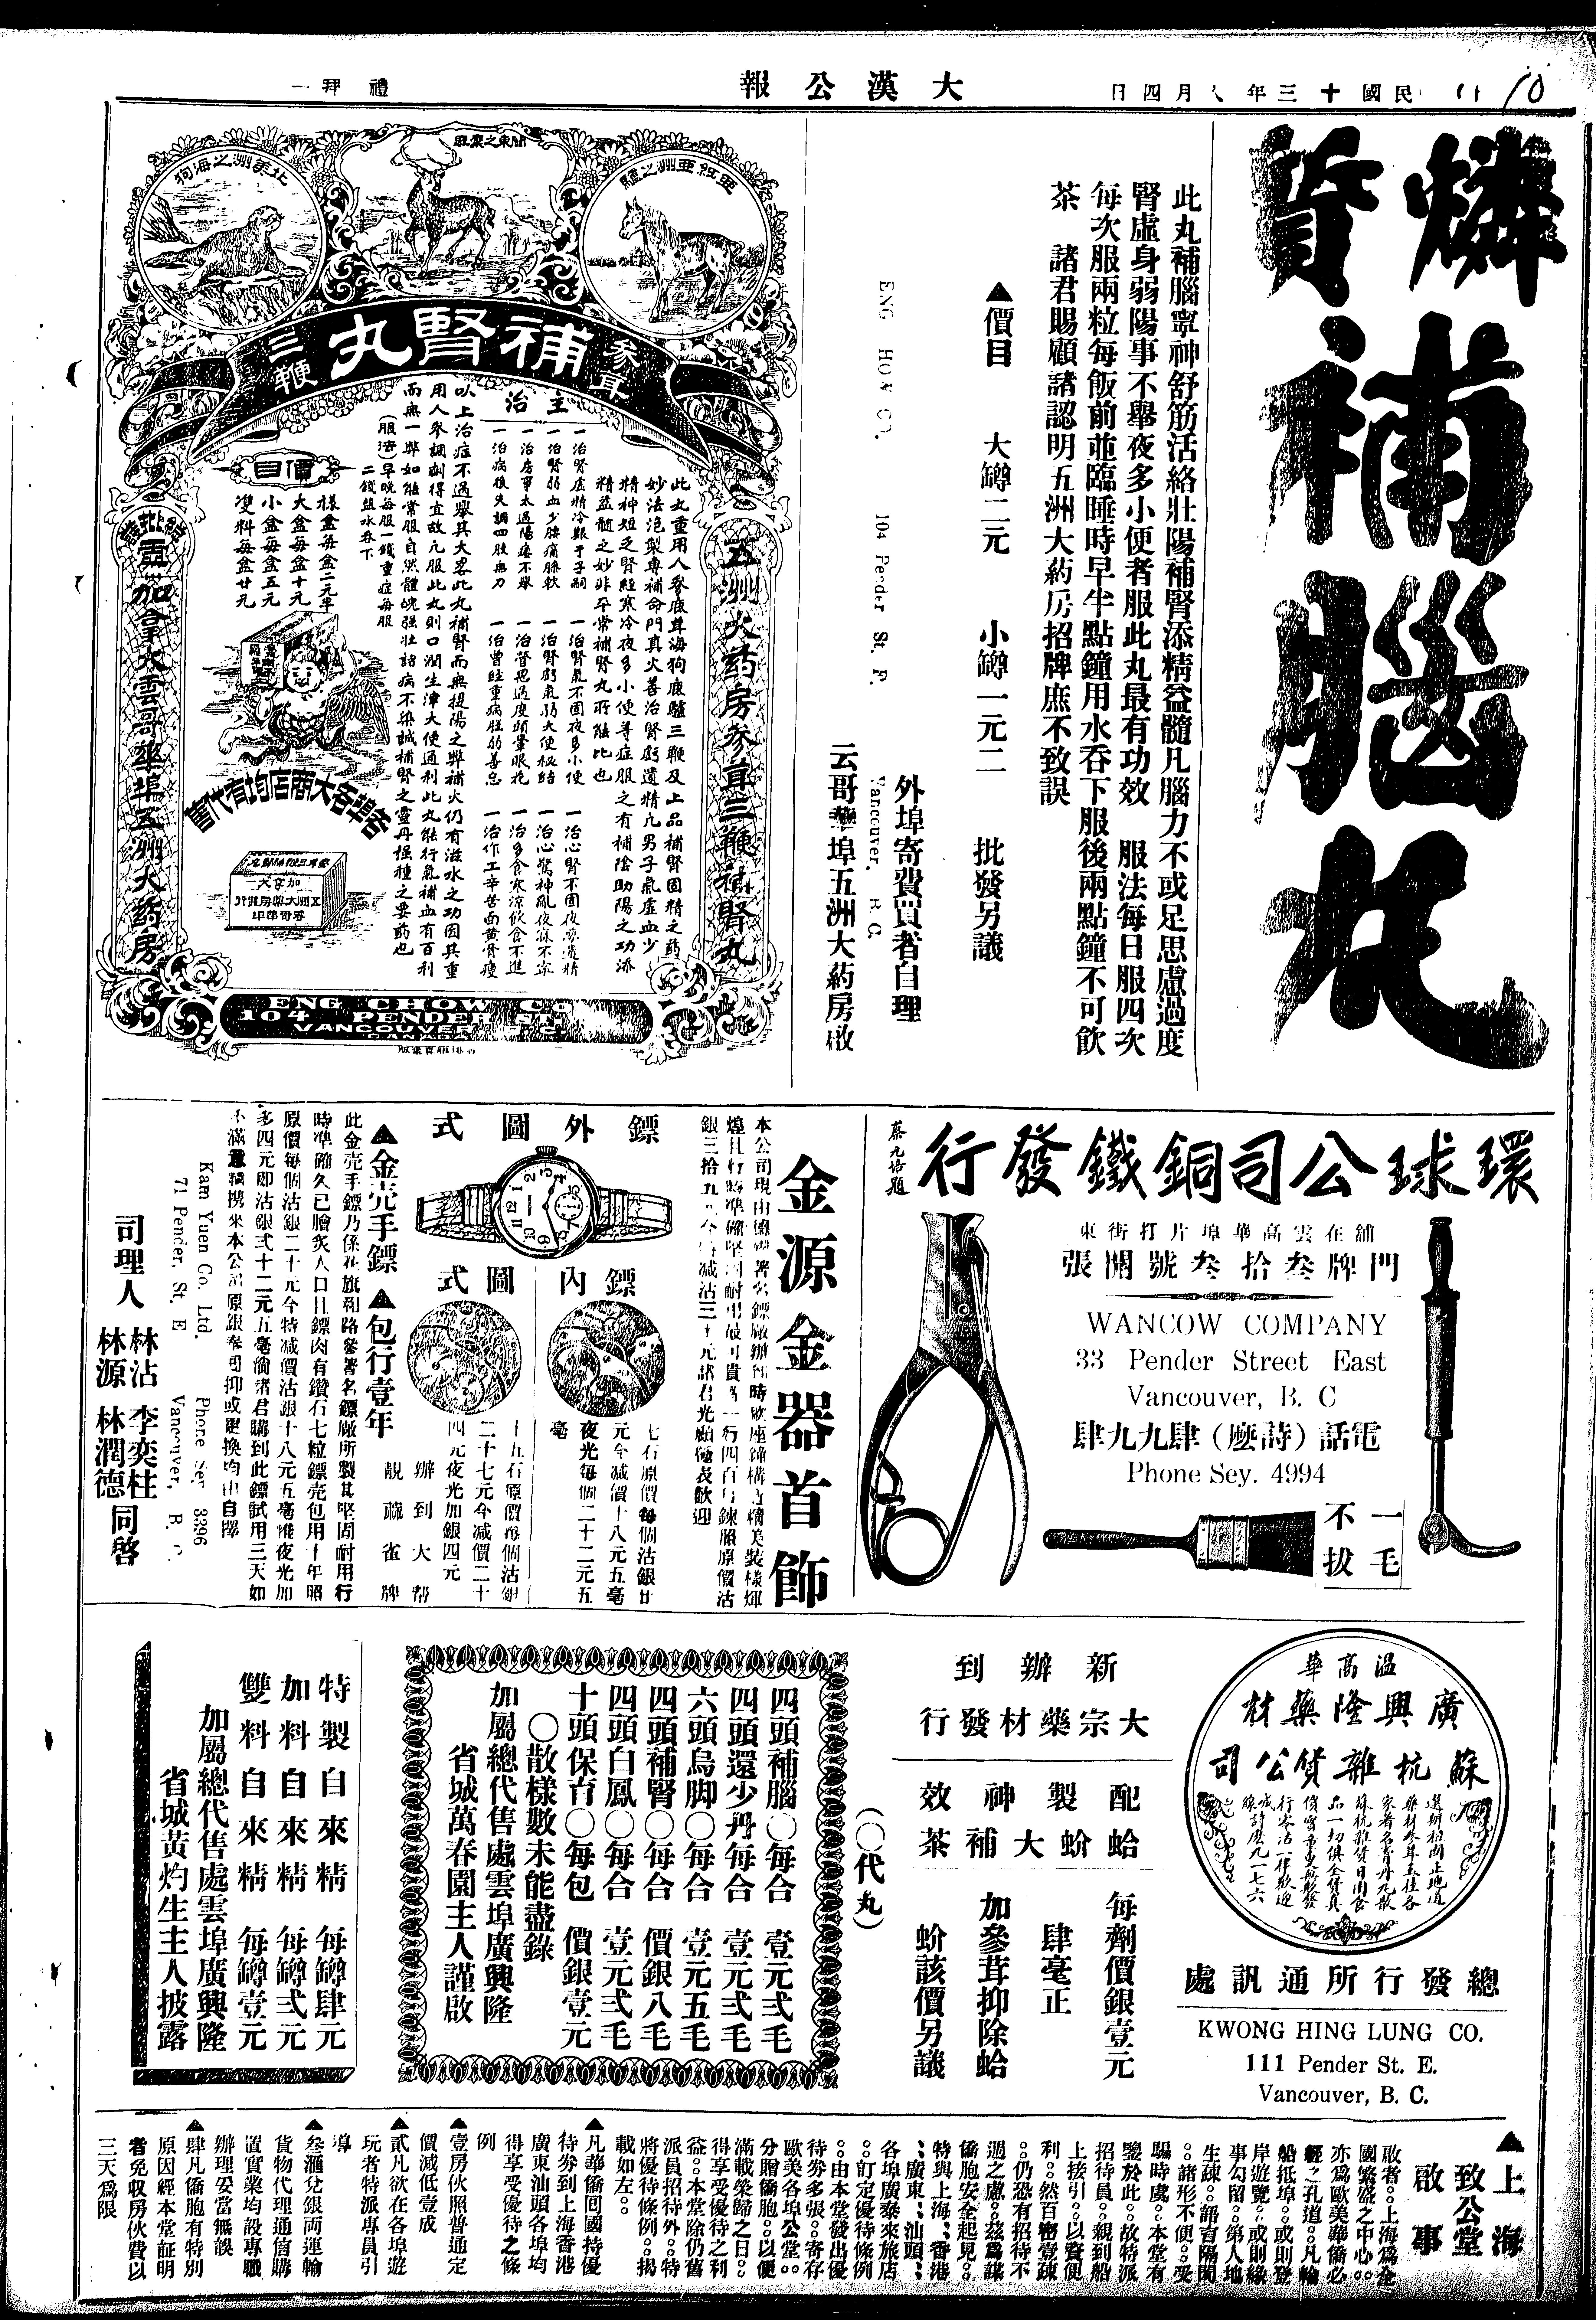 民國十三年八月四日
大漢公報
禮拜一
燐質補腦丸
此丸補腦寧神舒筋活絡壯陽補腎添精益髓凡腦力不或足思慮過度
腎虛身弱陽事不舉夜多小便者服此丸最有功效 服法每日服四次
每次服兩粒每飯前並臨睡時早半點鐘用水吞下服後兩點鐘不可飲
茶 諸君賜顧請認明五洲大葯房招牌庶不致誤
▲價目 大罇二元 小罇一元二 批發另議
外埠寄費買者自理
云哥華埠五洲大葯房啟
104 Pender St. E.
Vancouver, B. C.
關東之麋鹿
亞紅亞洲之驢
北美洲之海狗
參茸
補腎丸
三鞭
五洲大葯房參茸三鞭補腎丸
此丸重用人參鹿茸海狗鹿驢三鞭及上品補腎固精之葯
妙法泡製專補命門真火善治腎虧遺精凡男子氣虛血少
精神短乏腎經寒冷夜多小便等症服之有補陰助陽之功添
精益髓之妙非平常補腎丸所能比也
主治
一治腎虛精冷艱于子嗣 一治腎氣不固夜多小便 一治心腎不固夜夢遺精
一治腎弱血少腰痛膝軟 一治腎虧氣弱大便秘結 一治心驚神亂夜寐不寧
一治房事太過陽痿不舉 一治營思過度頭暈眼花 一治多食寒涼飲食不進
一治病後失調四肢無力 一治曾經重病胜弱善忘 一治作工辛苦面黄骨瘦
以上治症不過舉其大畧此丸補腎而無提陽之弊補火仍有滋水之功因其重
用人參調劑得宜故凡服此丸則口潤生津大便通利此丸能行氣補血有百利
而無一弊如能常服自然體魄强壯諸病不染誠補腎之靈丹種種之要葯也
(服法)早晚每服一錢重症每服
二錢盬水吞下
價目
樣盒每盒二元半
大盒每盒十元
小盒每盒五元
雙料每盒廿元
各埠各大商店均有代售
加拿大雲哥華埠五洲大葯房
ENG CHOW CO
104 PENDER ST E
VANCOUVER B C
CANADA
環球公司銅鐵發行
舖在雲高華埠片打街東
門牌叁拾叁號開張
WANCOW COMPANY
33 Pender Street East
Vancouver, B. C
電話(詩麼)肆九九肆
Phone Sey. 4994
一毛
不拔
金源金器首飾
鏢外圖式
鏢內圖式
七石原價每個沽銀廿
元今減價十八元五毫
夜光每個二十二元五
毫
十五石原價每個沽銀
二十七元今減價二十
四元夜光加銀四元
辦到大幇
靚蔴雀牌
▲金壳手鏢 ▲包行壹年
此金壳手鏢乃係花旗和路參署名鏢廠所製其堅固耐用行
時準確久已膾炙人口且鏢肉有鑽石七粒鏢壳包用十年照
原價每個沽銀二十元今特减價沽銀十八元五毫惟夜光加
多四元即沽銀弍十二元五毫倘諸君購到此鏢試用三天如
Kam Yuen Co. Ltd. Phone Sey. 3396
71 Pender, St. E Vancouver, B. C.
司理人 林沾 李奕柱
林源 林潤德 同啓
溫高華
廣興隆藥材
蘇杭雜貨公司
總發行所通訊處
KWONG HING LUNG CO.
111 Pender St. E.
Vancouver, B. C.
新辦到
大宗藥材發行
配製神效
蛤蚧大補茶
每劑價銀壹元
肆毫正
加參茸抑除蛤
蚧該價另議
(〇代丸)
四頭補腦〇每合 壹元弍毛
四頭還少丹每合 壹元弍毛
六頭烏脚〇每合 壹元五毛
四頭補腎〇每合 價銀八毛
四頭白鳳〇每合 壹元弍毛
十頭保育〇每包 價銀壹元
〇散樣數未能盡錄
加屬總代售處雲埠廣興隆
省城萬春園主人謹啟
特製自來精 每罇肆元
加料自來精 每罇弍元
雙料自來精 每罇壹元
加屬總代售處雲埠廣興隆
省城黃灼生主人披露
▲上海
致公堂
啟事
敬者。。上海爲全
國繁盛之中心。。
亦爲歐美華僑必
經之孔道。。凡輪
船抵埠。。或則登
岸遊覽。。或則緣
事勾留。。第人地
生疎。。語言隔閡
。。諸形不便。。受
騙時虞。。本堂有
鑒於此。。故特派
招待員。。親到船
上接引。。以資便
利。。然百密壹疎
。。仍恐有招待不
週之慮。。茲爲謀
僑胞安全起見。。
特與上海、香港
、廣東、汕頭、
各埠廣泰來旅店
。。訂定優待條例
。。由本堂發出優
待劵多張。。寄存
歐美各埠公堂。。
分贈僑胞。。以便
滿載榮歸之日。。
得享受優待之利
益。。本堂除仍舊
派員招待外。。特
將優待條例。。揭
載如左。。
▲凡華僑囘國持優
待劵到上海香港
廣東汕頭各埠均
得享受優待之條
例
▲壹房伙照普通定
價減低壹成
▲貳凡欲在各埠遊
玩者特派專員引
導
▲叁滙兌銀両運輸
貨物代理通信購
置實業均設專職
辦理妥當無誤
▲肆凡僑胞有特別
原因經本堂証明
者免収房伙費以
三天爲限